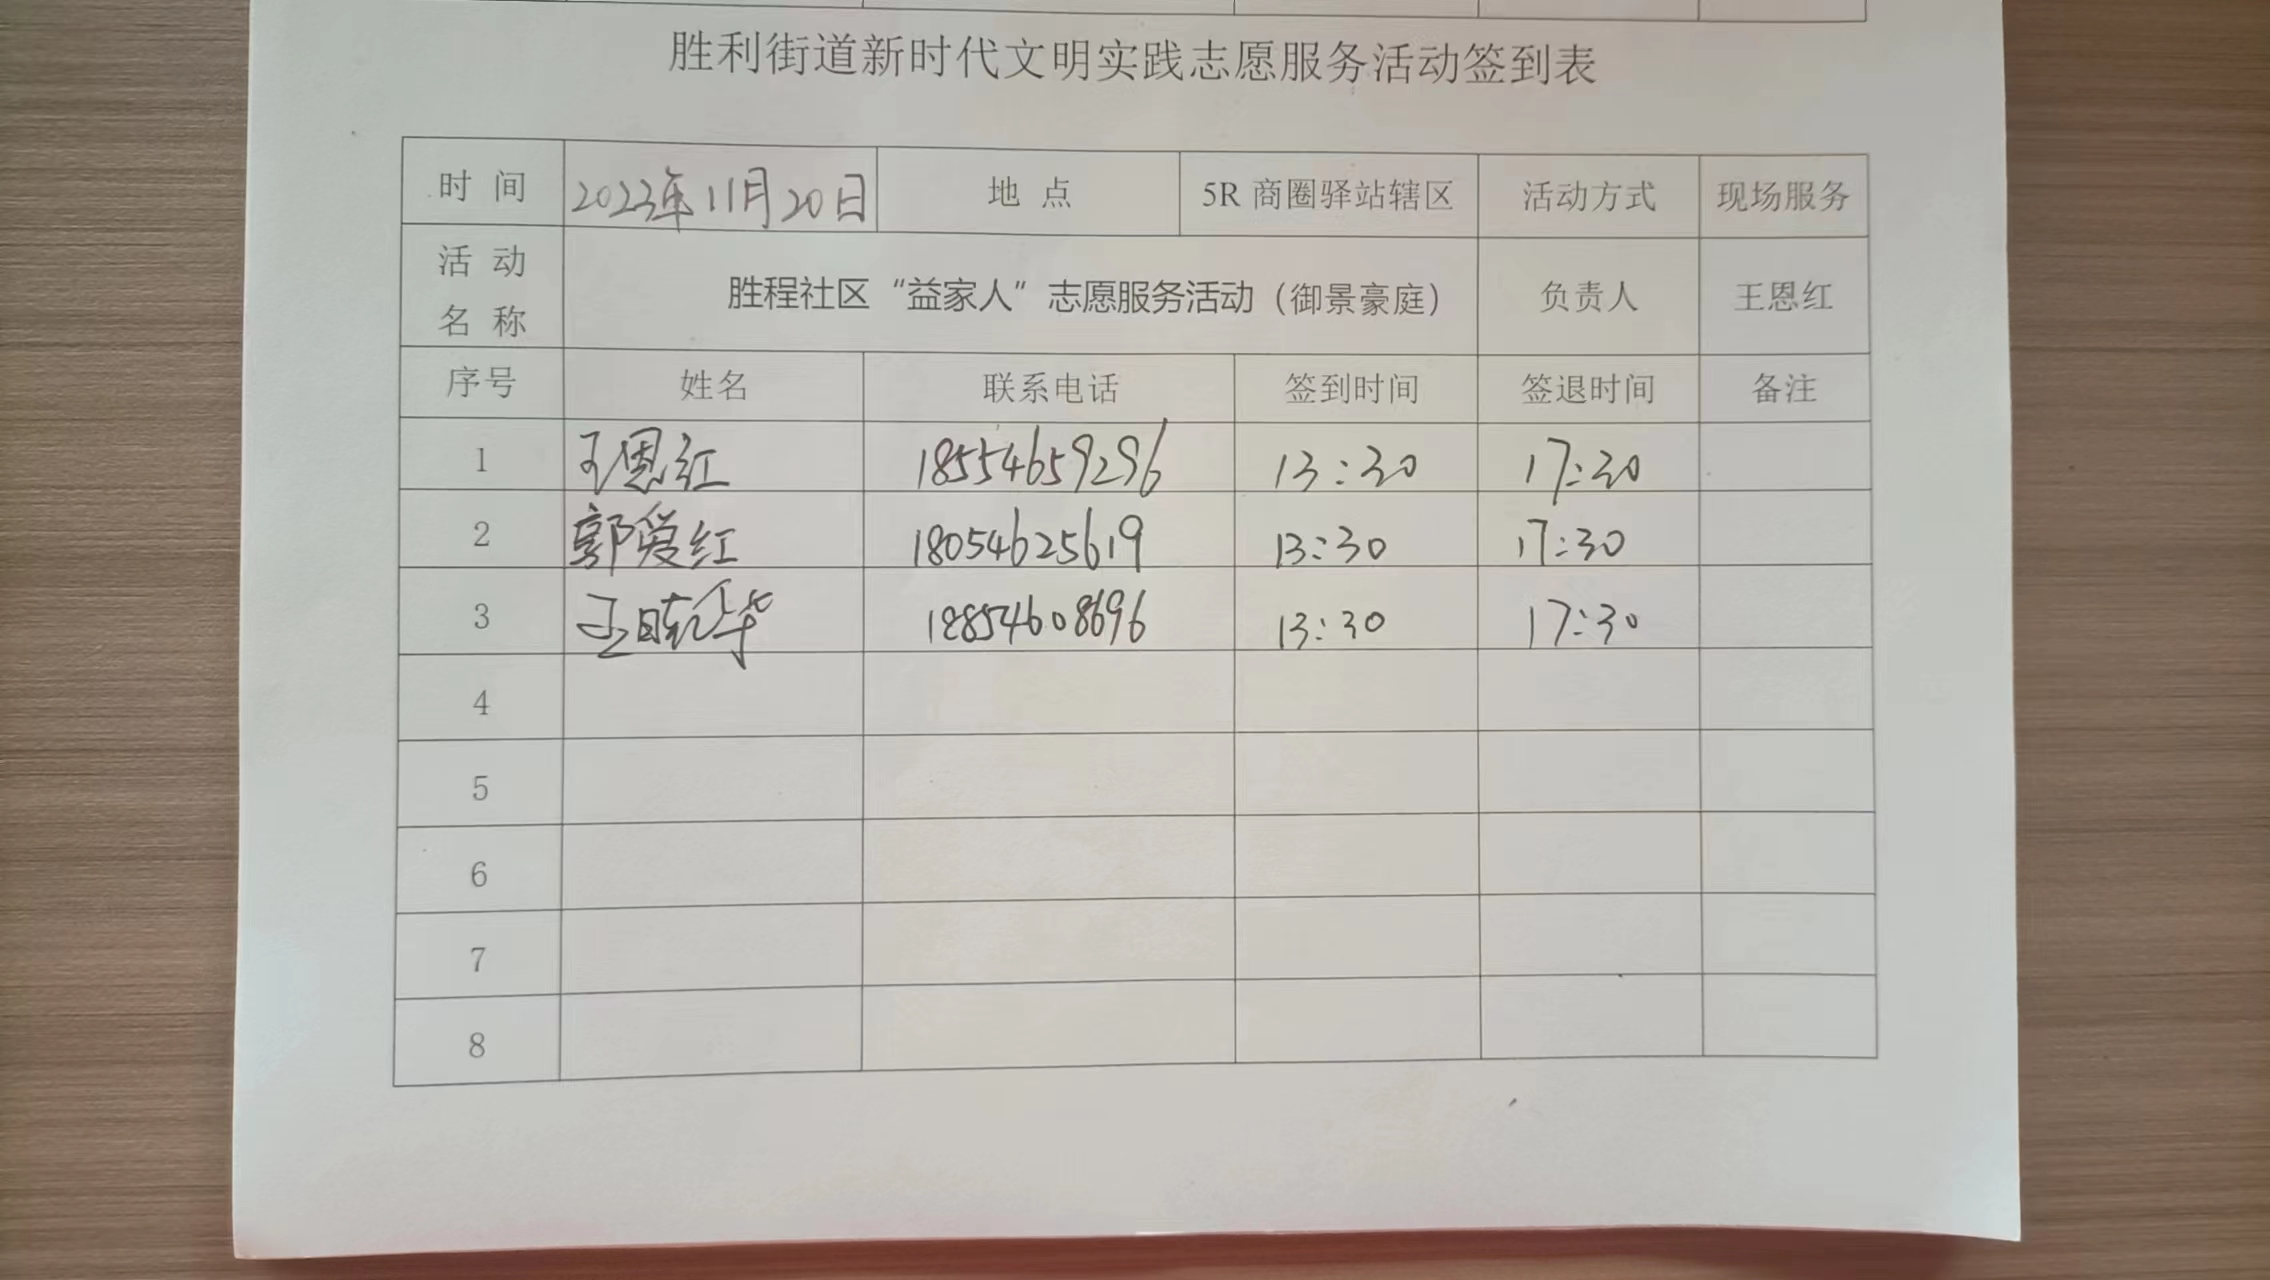 胜利街道新时代文明实践志愿服务活动签到表
时 间 2023年11月20日 地 点 5R 商圈驿站辖区 活动方式 现场服务
活 动
名 称 胜程社区“益家人”志愿服务活动（御景豪庭） 负责人 王恩红
序号 姓名 联系电话 签到时间 签退时间 备注
1 王恩红 18554659296 13:30 17:30
2 郭爱红 18054625619 13:30 17:30
3 王晓华 18854608696 13:30 17:30
4
5
6
7
8